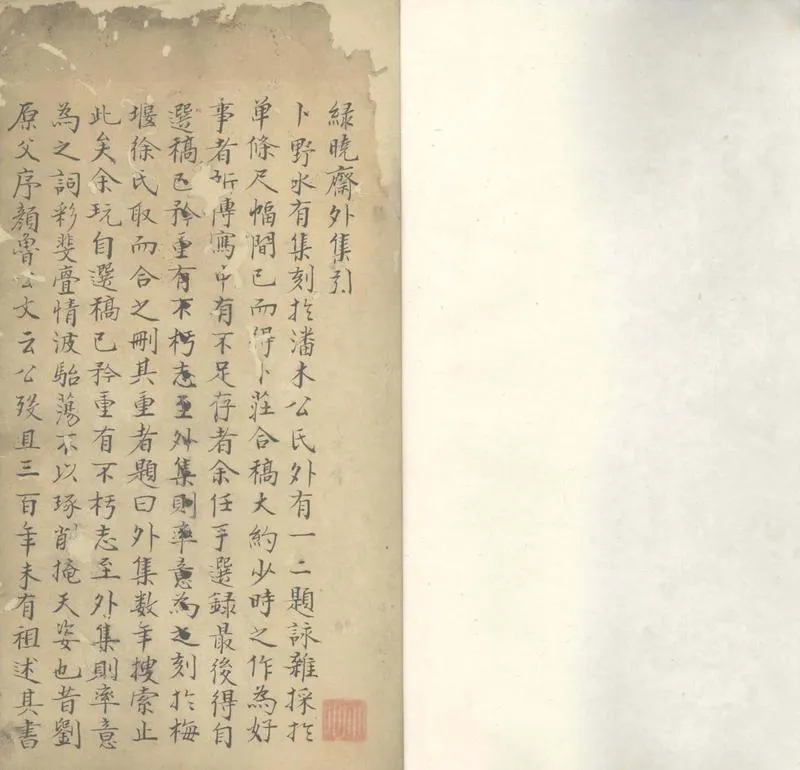 綠曉齋外集引
卜野水有集刻於潘木公氏外有一二題詠雜採於
单條尺幅間已而得卜莊合稿大約少時之作為好
事者所傳寫中有不足存者余任手選録最後得自
選稿已矜重有不朽志至外集則率意為之刻於梅
堰徐氏取而合之刪其重者題曰外集数年搜索止
此矣余玩自選稿已矜重有不朽志至外集則率意
為之詞彩斐亹情波駘蕩不以琢削掩天姿也昔劉
原父序顏魯公文云公歿且三百年未有祖述其書